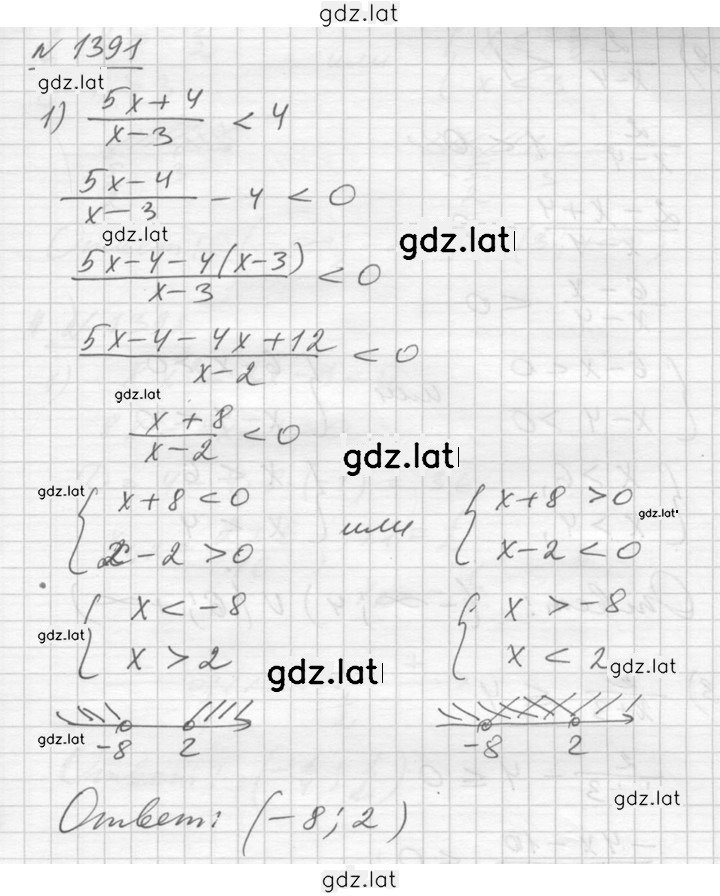 gdz.lat
№ 1391
gdz.lat
1) (5x+4)/(x-3) < 4
(5x-4)/(x-3) - 4 < 0
gdz.lat
gdz.lat
(5x-4-4(x-3))/(x-3) < 0
(5x-4-4x+12)/(x-2) < 0
gdz.lat
(x+8)/(x-2) < 0
gdz.lat
gdz.lat
{ x+8 < 0 или { x+8 > 0
gdz.lat
x-2 > 0 x-2 < 0
{ x < -8 { x > -8
gdz.lat
x > 2 x < 2
gdz.lat
gdz.lat
gdz.lat
-8 2 -8 2
gdz.lat
Ответ: (-8; 2)
gdz.lat